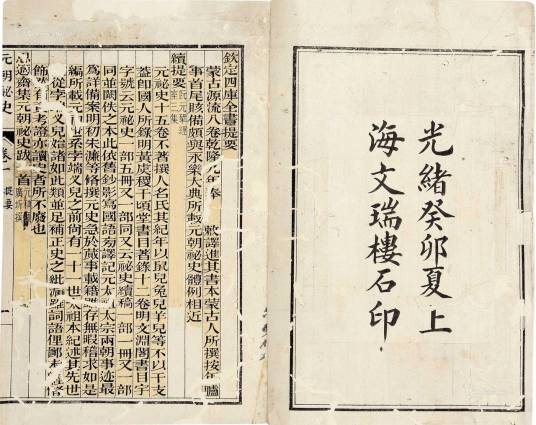 光緒癸卯夏上
海文瑞樓石印
欽定四庫全書提要
蒙古源流八卷乾隆元年奉 敕譯進其書本蒙古人所撰按年臚
事首尾賅備頗與永樂大典所載元朝祕史體例相近
續提要
元祕史十五卷不著撰人名氏其紀年以鼠兒兔兒羊兒等不以干支
蓋即國人所錄明黃虞稷千頃堂書目著錄十二卷明文淵閣書目宇
字號云元祕史一部五冊又一部同又云祕史續稿一部一冊又一部
同並闕佚之本此依舊鈔影寫國語旁譯記元太祖太宗兩朝事迹最
為詳備案明初宋濂等修撰元史急於蕆事載籍雖存無暇稽求如是
編所載元世系字端叉兒之前尚有一十一世太祖本紀述其先世
從字叉兒始諸如此類並足補正史之紕詞語俚鄙未
飾有考證亦讀史者所不廢也
齋集元朝祕史跋
元朝祕史 卷一 提要